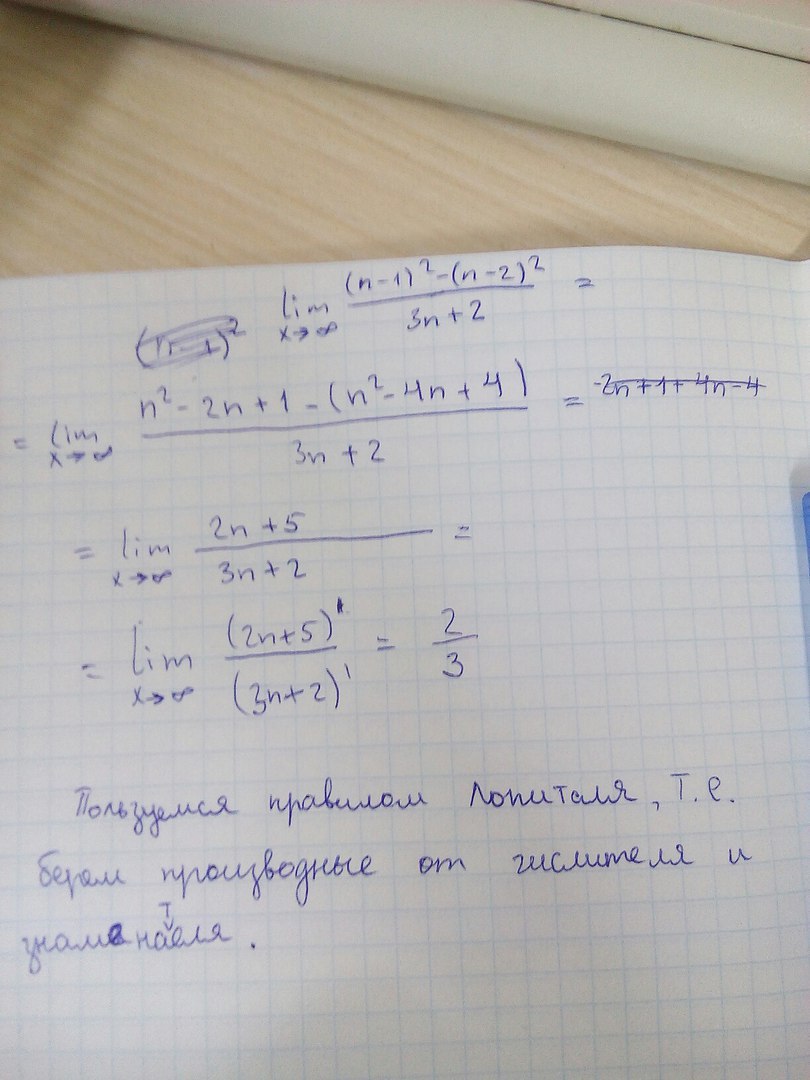 lim x→∞ (n-1)²-(n-2)² / 3n+2 =
= lim x→∞ n² - 2n + 1 - (n² - 4n + 4) / 3n + 2 = -2n+1+4n-4
= lim x→∞ 2n+5 / 3n+2 =
= lim x→∞ (2n+5)' / (3n+2)' = 2/3
Пользуемся правилом Лопиталя, т.е.
берем производные от числителя и
знаменателя.